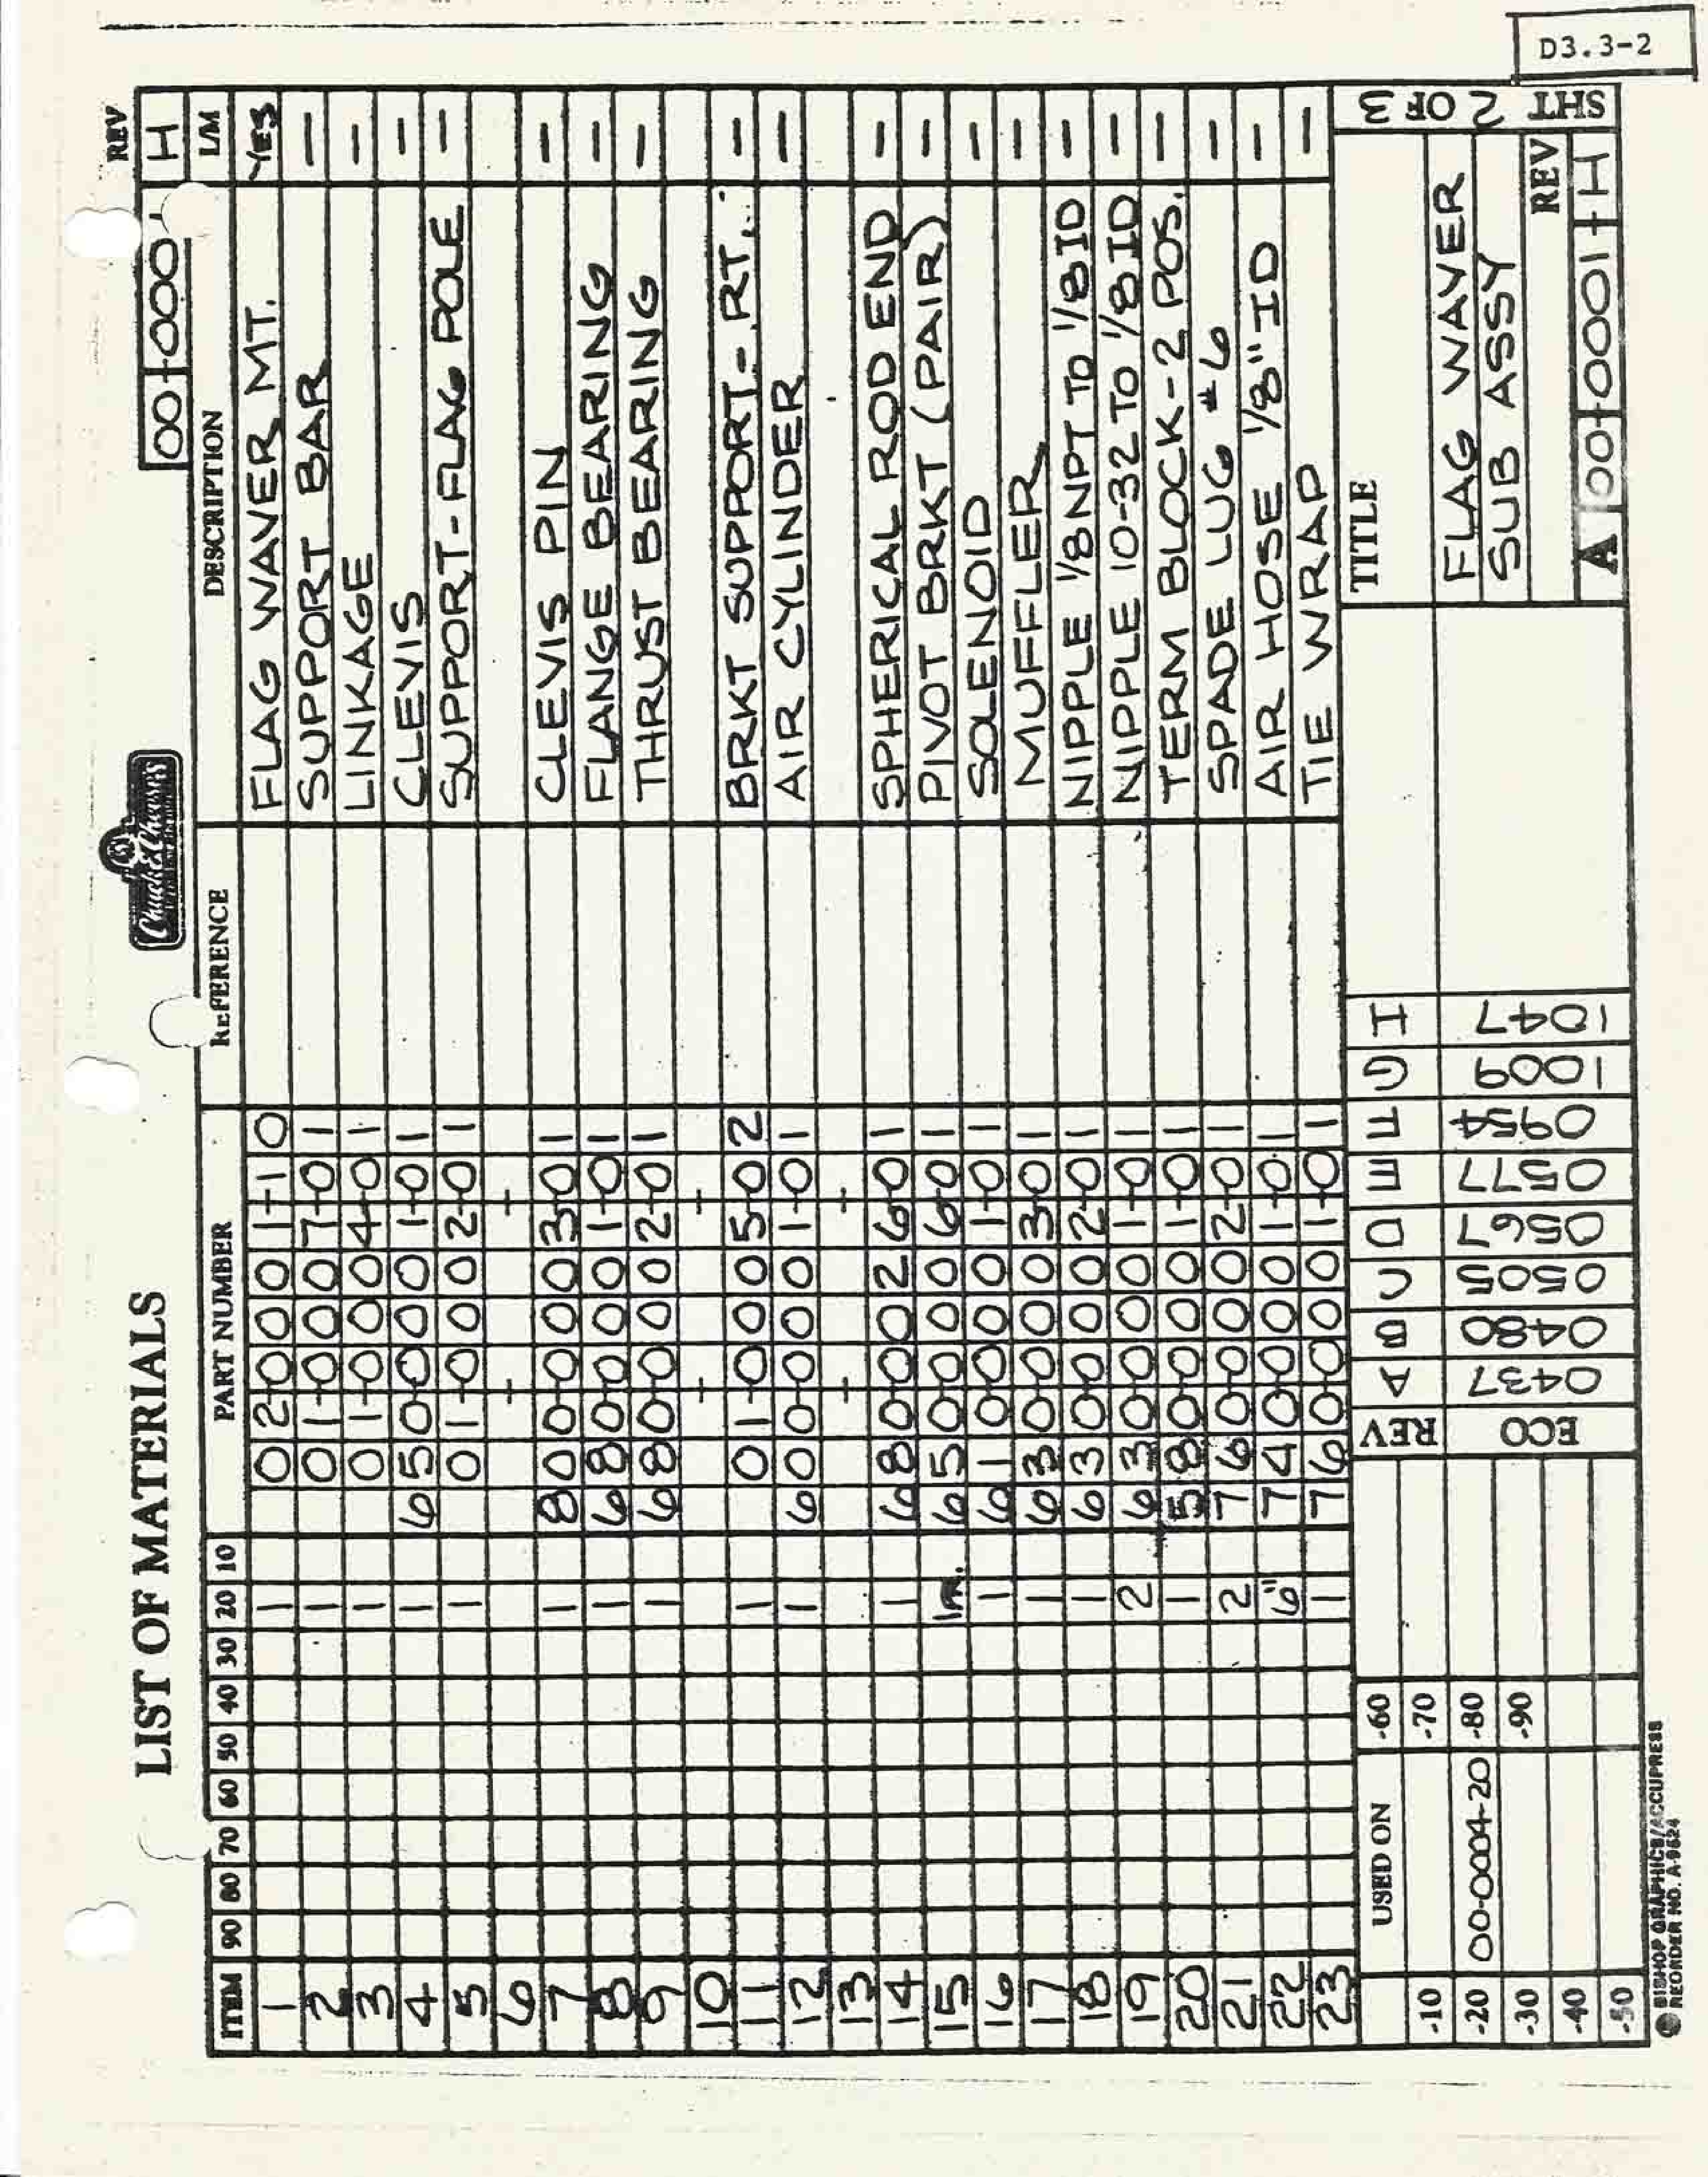 D3.3-2
LIST OF MATERIALS
Chuck E. Cheese's
REV
00-000 H
ITEM 90 80 70 60 50 40 30 20 10 PART NUMBER REFERENCE DESCRIPTION L/M
1 1 02-0001-10 FLAG WAVER MT. YES
2 1 01-0007-01 SUPPORT BAR —
3 1 01-0004-01 LINKAGE —
4 1 650-0001-01 CLEVIS —
5 1 01-0002-01 SUPPORT-FLAG POLE —
6 - -
7 1 800-0003-01 CLEVIS PIN —
8 1 680-0001-01 FLANGE BEARING —
9 1 680-0002-01 THRUST BEARING —
10 - -
11 1 01-0005-02 BRKT SUPPORT-RT. —
12 1 600-0001-01 AIR CYLINDER —
13 - -
14 1 680-0026-01 SPHERICAL ROD END —
15 1PR. 650-0006-01 PIVOT BRKT (PAIR) —
16 1 610-0001-01 SOLENOID —
17 1 630-0003-01 MUFFLER —
18 1 630-0002-01 NIPPLE 1/8NPT TO 1/8ID —
19 2 630-0001-01 NIPPLE 10-32 TO 1/8ID —
20 1 580-0001-01 TERM BLOCK-2 POS. —
21 2 760-0002-01 SPADE LUG #6 —
22 6" 740-0001-01 AIR HOSE 1/8" ID —
23 1 760-0001-01 TIE WRAP —
USED ON
-10 -60
-20 00-0004-20 -70
-30 -80
-40 -90
-50
REV A B C D E F G H
ECO 0437 0480 0505 0567 0577 0954 1009 1047
TITLE
FLAG WAVER
SUB ASSY
REV
A 00-0001 H
SHT 2 OF 3
© BISHOP GRAPHICS/ACCUPRESS
REORDER NO. A-9624